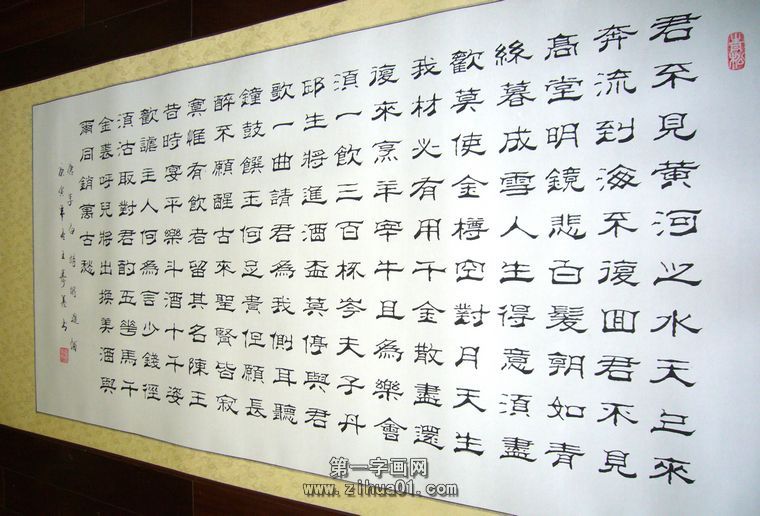 君不見黄河之水天上來
奔流到海不復回君不見
高堂明鏡悲白髮朝如青
絲暮成雪人生得意須盡
歡莫使金樽空對月天生
我材必有用千金散盡還
復來烹羊宰牛且為樂會
須一飲三百杯岑夫子丹
邱生將進酒盃莫停與君
歌一曲請君為我側耳聽
鐘鼓饌玉何足貴但願長
醉不願醒古來聖賢皆寂
寞惟有飲者留其名陳王
昔時宴平樂斗酒十千恣
歡謔主人何為言少錢徑
須沽取對君酌五華馬千
金裘呼兒將出換美酒與
爾同銷萬古愁
唐李白詩將進酒
第一字画网
www.zihua01.com